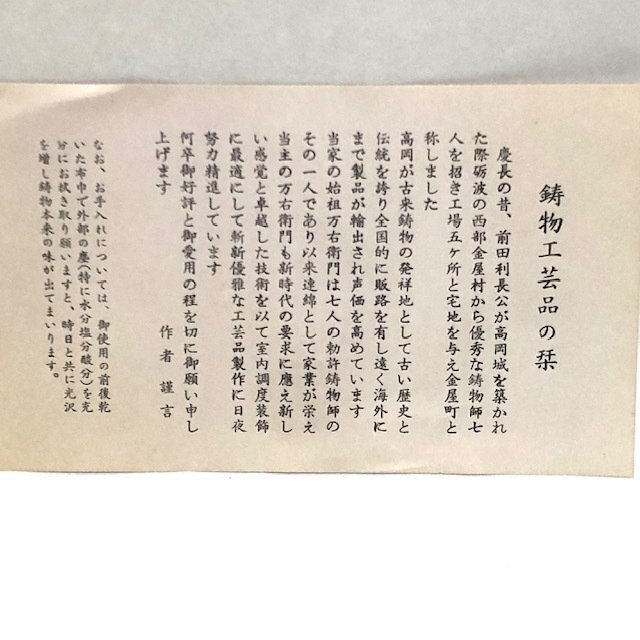 鋳物工芸品の栞
慶長の昔、前田利長公が高岡城を築かれ
た際砺波の西部金屋村から優秀な鋳物師七
人を招き工場五ヶ所と宅地を与え金屋町と
称しました
高岡が古来鋳物の発祥地として古い歴史と
伝統を誇り全国的に販路を有し遠く海外に
まで製品が輸出され声価を高めています
当家の始祖万右衛門は七人の勅許鋳物師の
その一人であり以来連綿として家業が栄え
当主の万右衛門も新時代の要求に應え新し
い感覚と卓越した技術を以て室内調度装飾
に最適にして斬新優雅な工芸品製作に日夜
努力精進しています
何卒御好評と御愛用の程を切に御願い申し
上げます
作者謹言
なお、お手入れについては、御使用の前後乾
いた布巾で外部の塵(特に水分塩分酸分)を充
分にお拭き取り願いますと、時日と共に光沢
を増し鋳物本来の味が出てまいります。